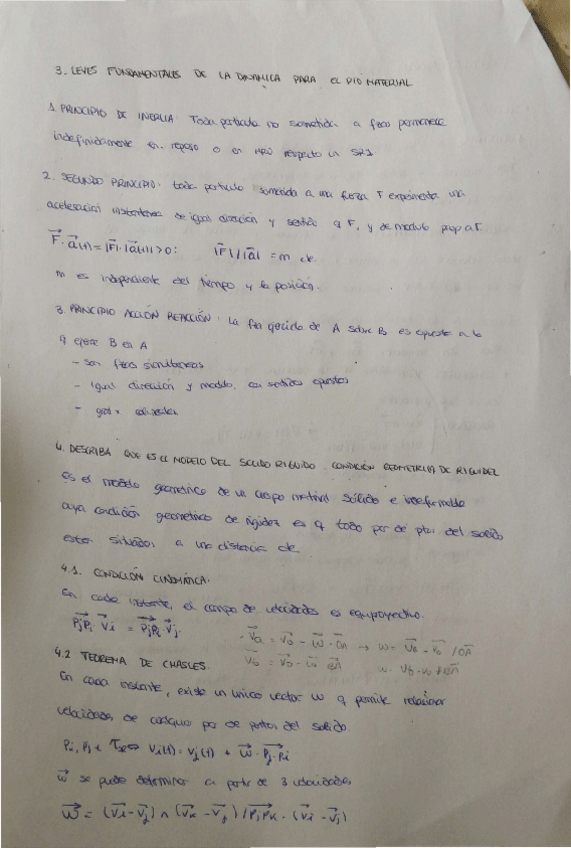 3. LEYES FUNDAMENTALES DE LA DINAMICA PARA EL PTO MATERIAL
1. PRINCIPIO DE INERCIA: Toda partícula no sometida a fzas permanece
indefinidamente en reposo o en MRU respecto un SRI
2. SEGUNDO PRINCIPIO: toda partícula sometida a una fuerza F experimenta una
aceleración instantánea de igual dirección y sentido q F, y de modulo prop a F.
F⃗ · a⃗(t) = |F⃗| · |a⃗(t)| > 0: |F⃗| / |a⃗| = m cte
m es independiente del tiempo y la posición.
3. PRINCIPIO ACCIÓN REACCIÓN: La fza ejercida de A sobre B es opuesta a la
q ejerce B en A
- Son fzas simultaneas
- Igual dirección y modulo, con sentidos opuestos
-
4. DESCRIBA QUE ES EL MODELO DEL SOLIDO RIGIDO. CONDICIÓN GEOMETRICA DE RIGIDEZ
Es el modelo geometrico de un cuerpo material sólido e indeformable
cuya condición geometrica de rigidez es q todo par de ptos del solido
estan situados a una distancia cte
4.1. CONDICIÓN CINEMÁTICA.
En cada instante, el campo de velocidades es equiproyectivo.
PjPi · Vi = PjPi · Vj
Va = Vo - ω · OA → ω =
Vb = Vo - ω
4.2 TEOREMA DE CHASLES.
En cada instante, existe un unico vector ω q permite relacionar
velocidades de cualquier par de puntos del solido.
Pi, Pj ∈ Vi(t) = Vj(t) + ω⃗ · PjPi
ω⃗ se puede determinar a partir de 3 velocidades
ω⃗ = (Vi - Vj) ∧ (Vk - Vj) / PjPk · (Vi - Vj)